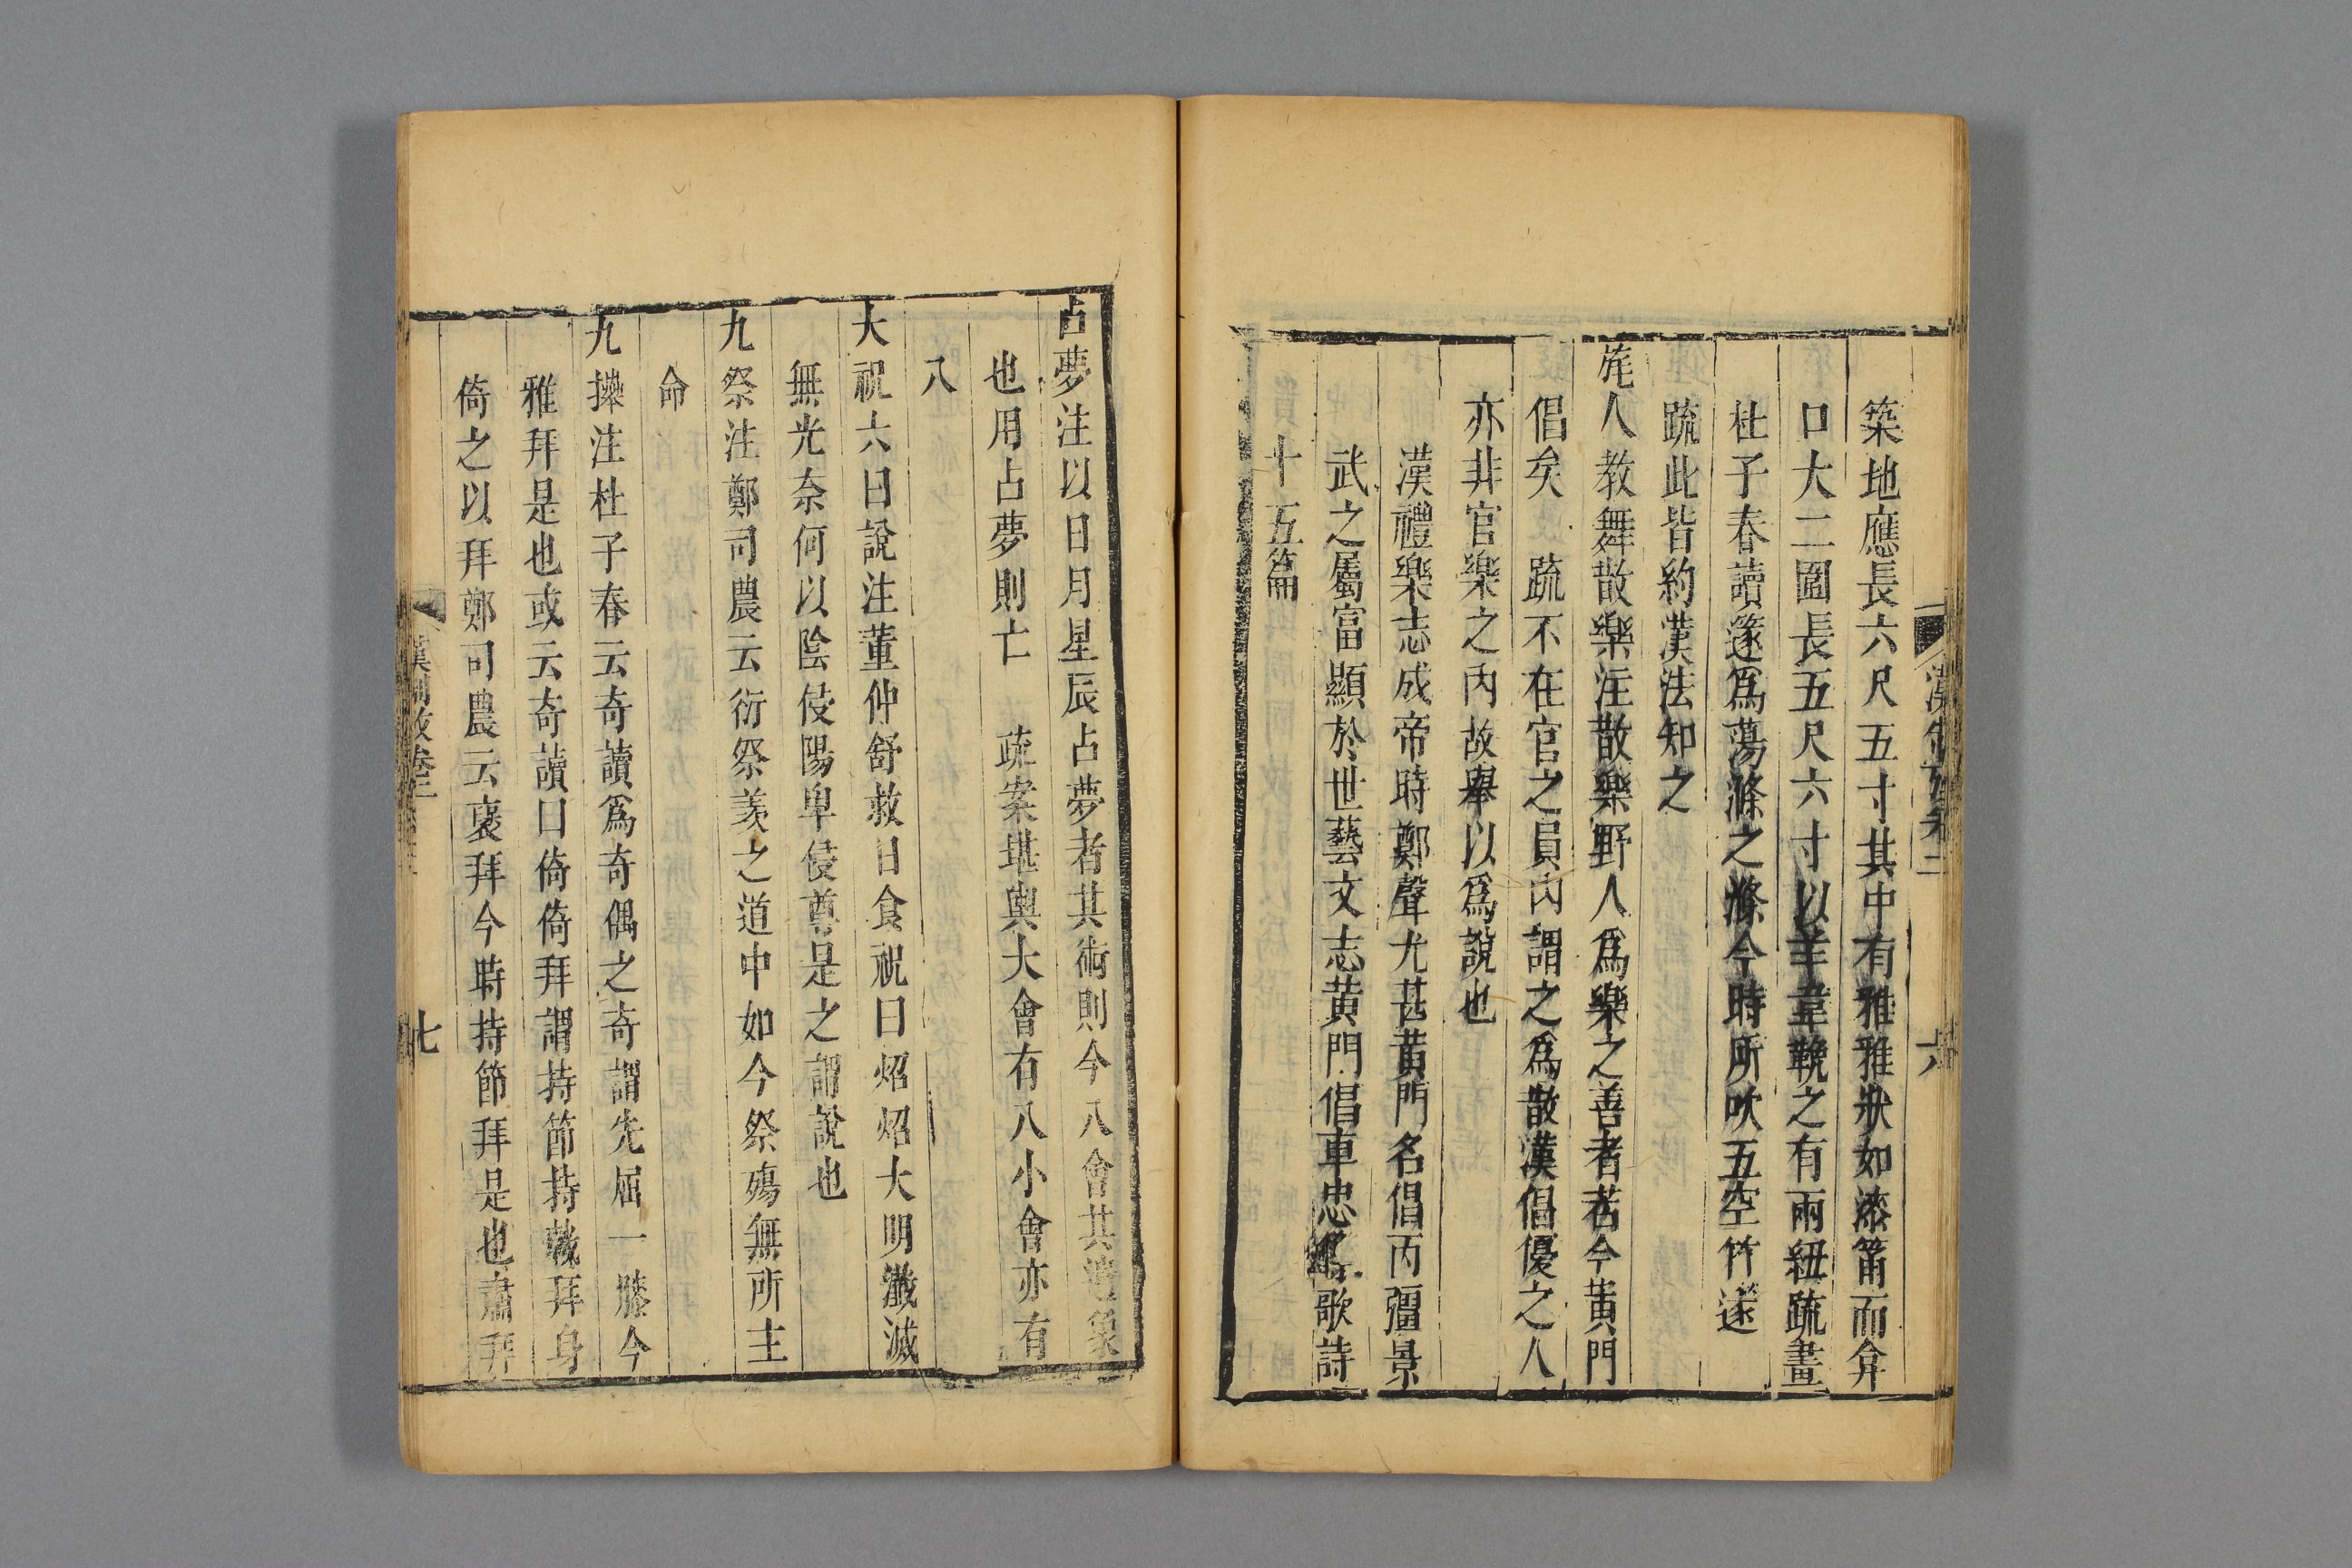 築地應長六尺五寸其中有雅雅狀如漆筩而弇
口大二圍長五尺六寸以羊韋鞔之有兩紐疏畫
杜子春讀篴爲蕩滌之滌今時所吹五空竹篴
疏此皆約漢法知之
旄人教舞散樂注散樂野人爲樂之善者若今黃門
倡矣　疏不在官之員內謂之爲散漢倡優之人
亦非官樂之內故舉以爲說也
漢禮樂志成帝時鄭聲尤甚黃門名倡丙彊景
武之屬富顯於世藝文志黃門倡車忠歌詩
十五篇
六
占夢注以日月星辰占夢者其術則今八會其遺象
也用占夢則亡　疏案堪輿大會有八小會亦有
八
大祝六曰說注董仲舒救日食祝曰炤炤大明瀸滅
無光奈何以陰侵陽卑侵尊是之謂說也
九祭注鄭司農云衍祭羨之道中如今祭殤無所主
命
九擽注杜子春云奇讀爲奇偶之奇謂先屈一膝今
雅拜是也或云奇讀曰倚倚拜謂持節持戟拜身
倚之以拜鄭司農云褒拜今時持節拜是也肅拜
漢制攷卷二
七